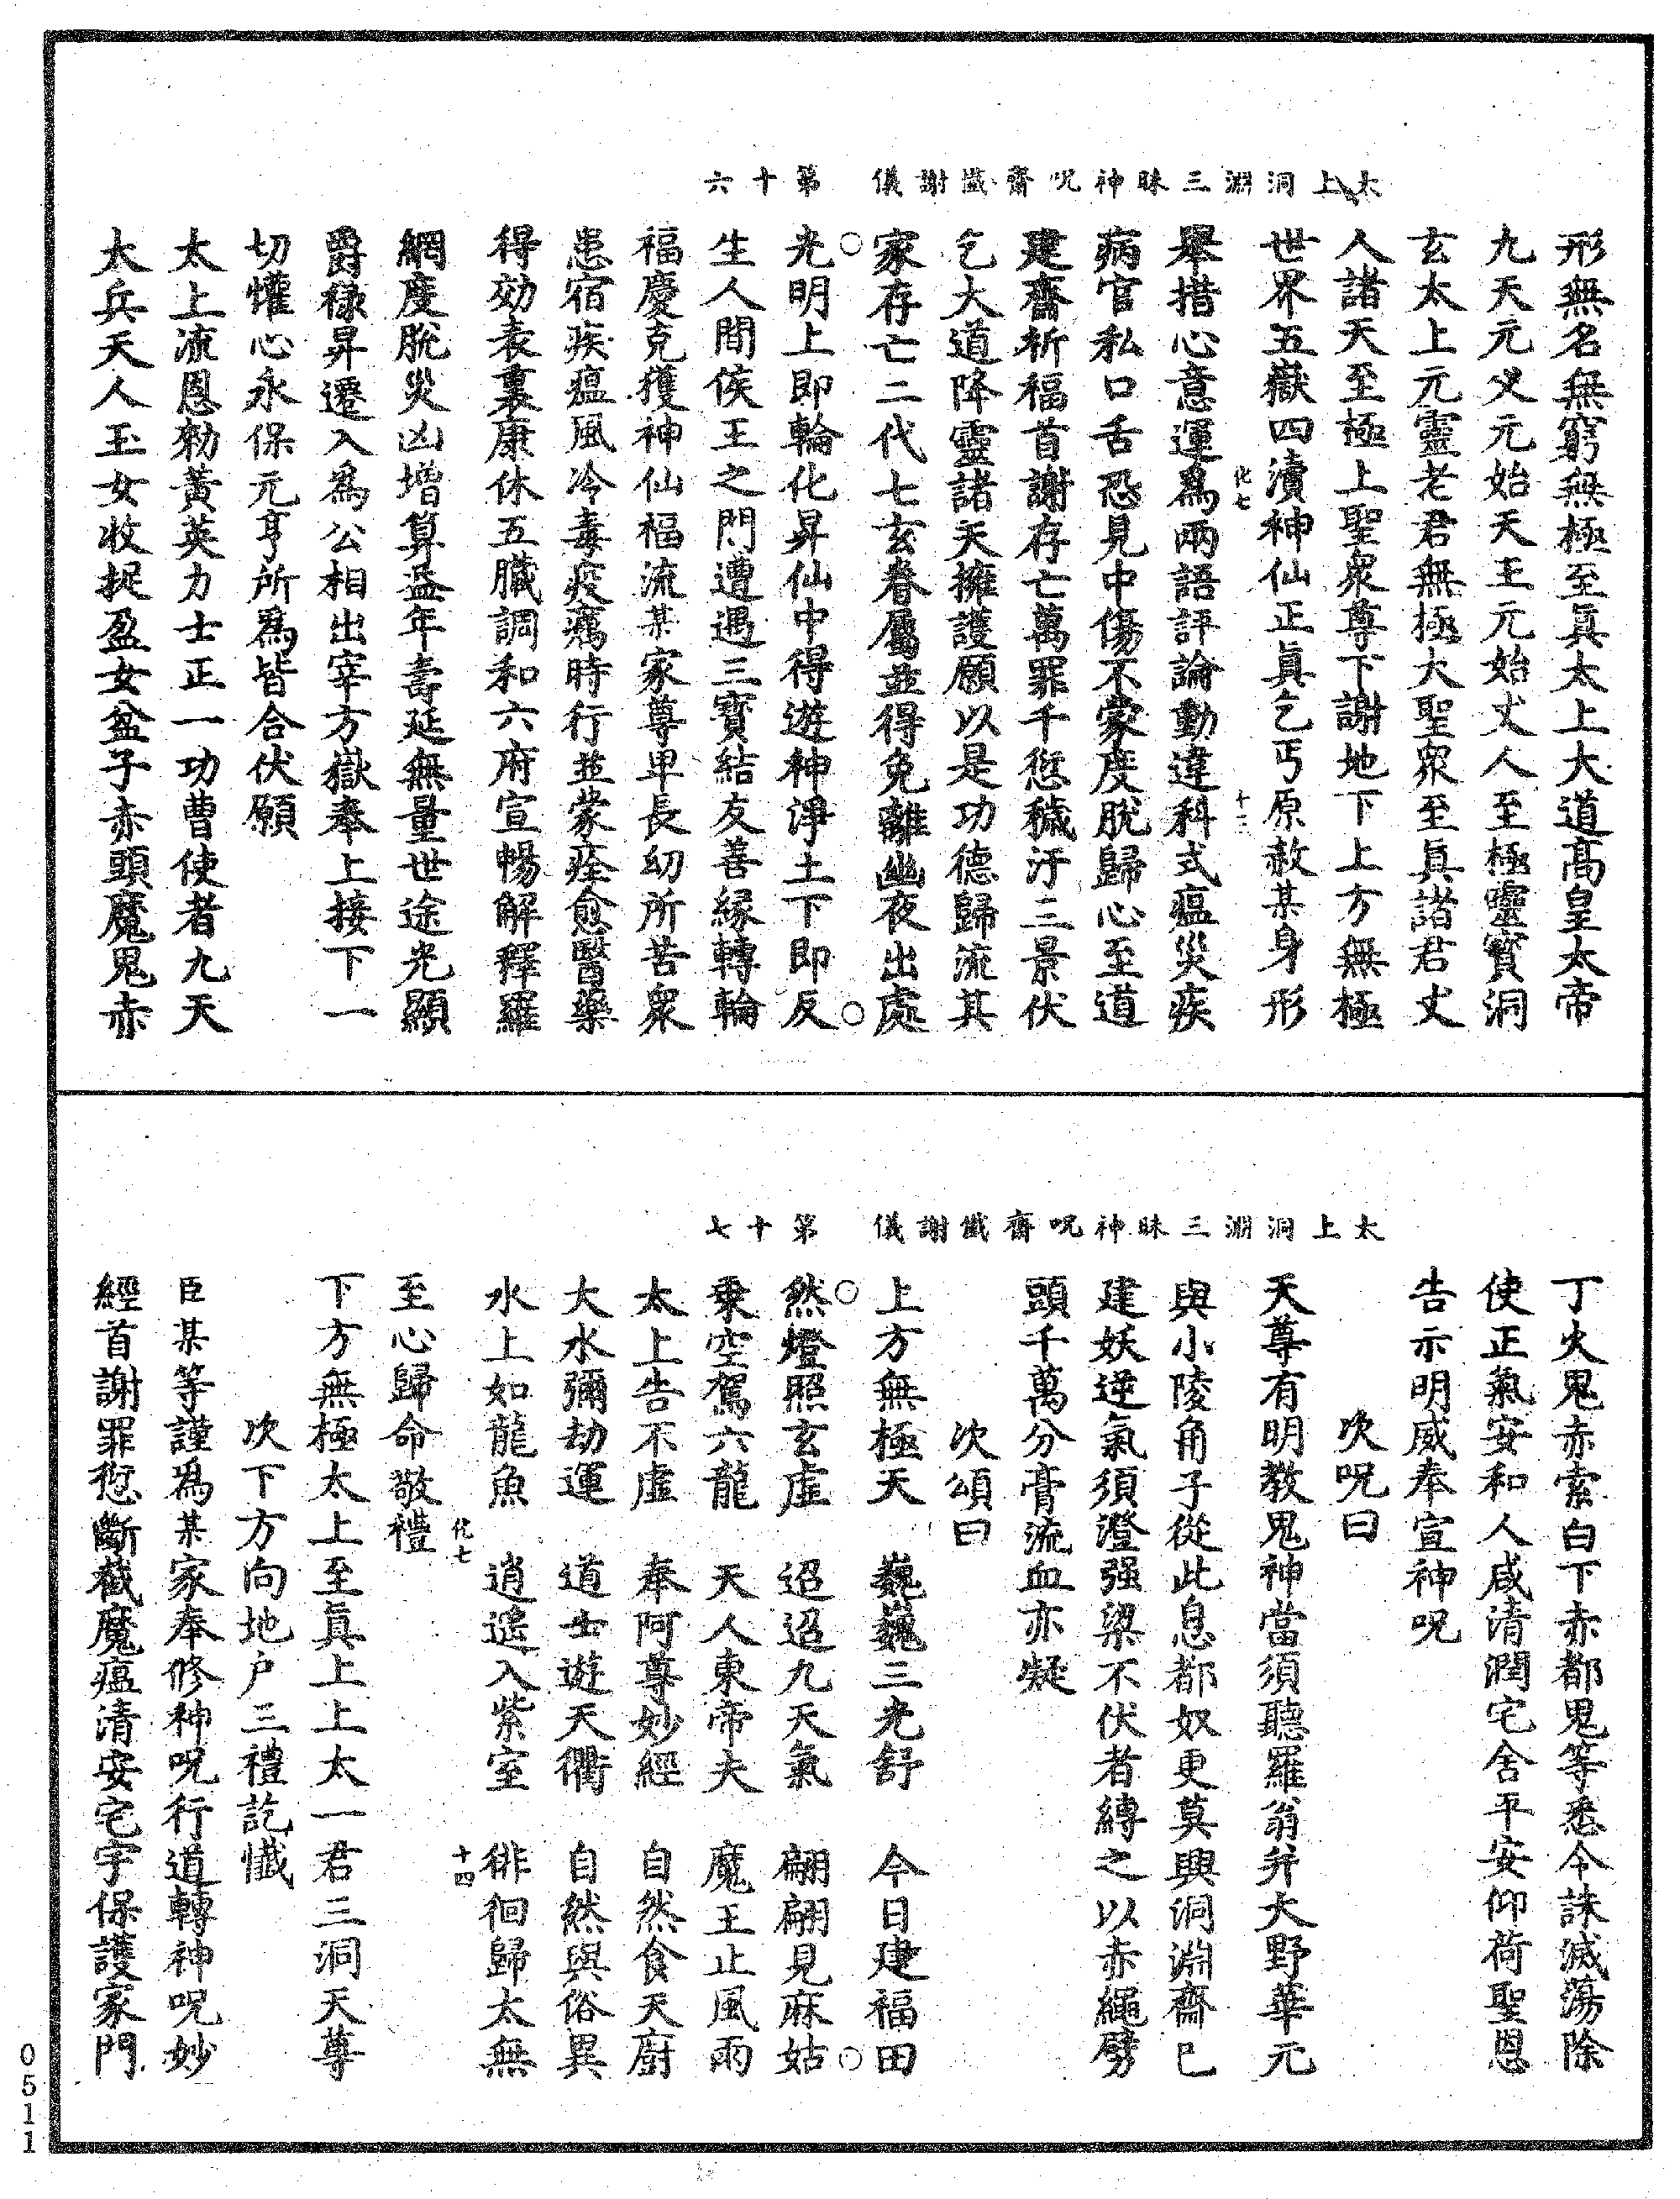 太上洞淵三昧神呪齋懺謝儀　第十六
形無名無窮無極至眞太上大道高皇太帝
九天元父元始天王元始丈人至極靈寶洞
玄太上元靈老君無極大聖衆至眞諸君丈
人諸天至極上聖衆尊下謝地下上方無極
世界五嶽四瀆神仙正眞乞丐原赦某身形
化七　十三
舉措心意運爲兩語評論動違科式瘟災疾
病官私口舌恐見中傷不蒙度脫歸心至道
建齋祈福首謝存亡萬罪千愆穢汙三景伏
乞大道降靈諸天擁護願以是功德歸流其
家存亡二代七玄眷屬並得免離幽夜出處
光明上即輪化昇仙中得遊神淨土下即反
生人間侯王之門遭遇三寶結友善緣轉輪
福慶克獲神仙福流某家尊卑長幼所苦衆
患宿疾瘟風冷毒疫癘時行並蒙痊愈醫藥
得効表裏康休五臟調和六府宣暢解釋羅
網度脫災凶增算益年壽延無量世途光顯
爵祿昇遷入爲公相出宰方嶽奉上接下一
切懽心永保元亨所爲皆合伏願
太上流恩勑黃英力士正一功曹使者九天
大兵天人玉女收捉盈女盆子赤頭魔鬼赤
太上洞淵三昧神呪齋懺謝儀　第十七
丁火鬼赤索白下赤都鬼等悉令誅滅蕩除
使正氣安和人咸清潤宅舍平安仰荷聖恩
告示明威奉宣神呪
次呪曰
天尊有明教鬼神當須聽羅翁幷大野華元
與小陵角子從此息都奴更莫興洞淵齋已
建妖逆氣須澄强梁不伏者縛之以赤繩劈
頭千萬分膏流血亦凝
次頌曰
上方無極天　巍巍三光舒　今日建福田
然燈照玄虛　迢迢九天氣　翩翩見麻姑
乗空駕六龍　天人東帝夫　魔王止風雨
太上告不虛　奉阿尊妙經　自然食天廚
大水彌劫運　道士遊天衢　自然與俗異
水上如龍魚　逍遥入紫室　徘徊歸太無
化七　十四
至心歸命敬禮
下方無極太上至眞上上太一君三洞天尊
次下方向地户三禮訖懺
臣某等謹爲某家奉修神呪行道轉神呪妙
經首謝罪愆斷截魔瘟清安宅宇保護家門
0511